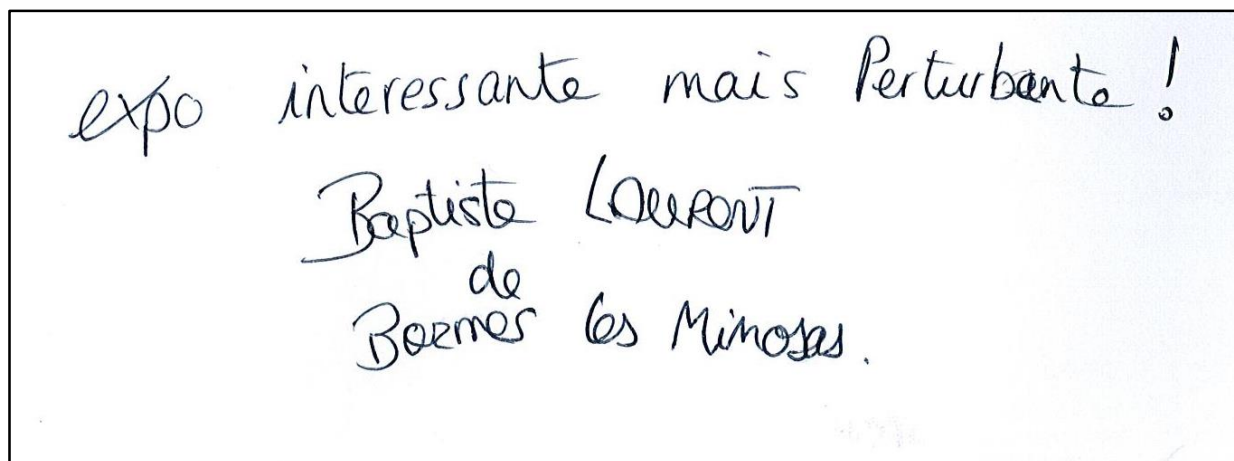 expo interessante mais Perturbante !
Baptiste LAURENT
de
Bormes les Mimosas.